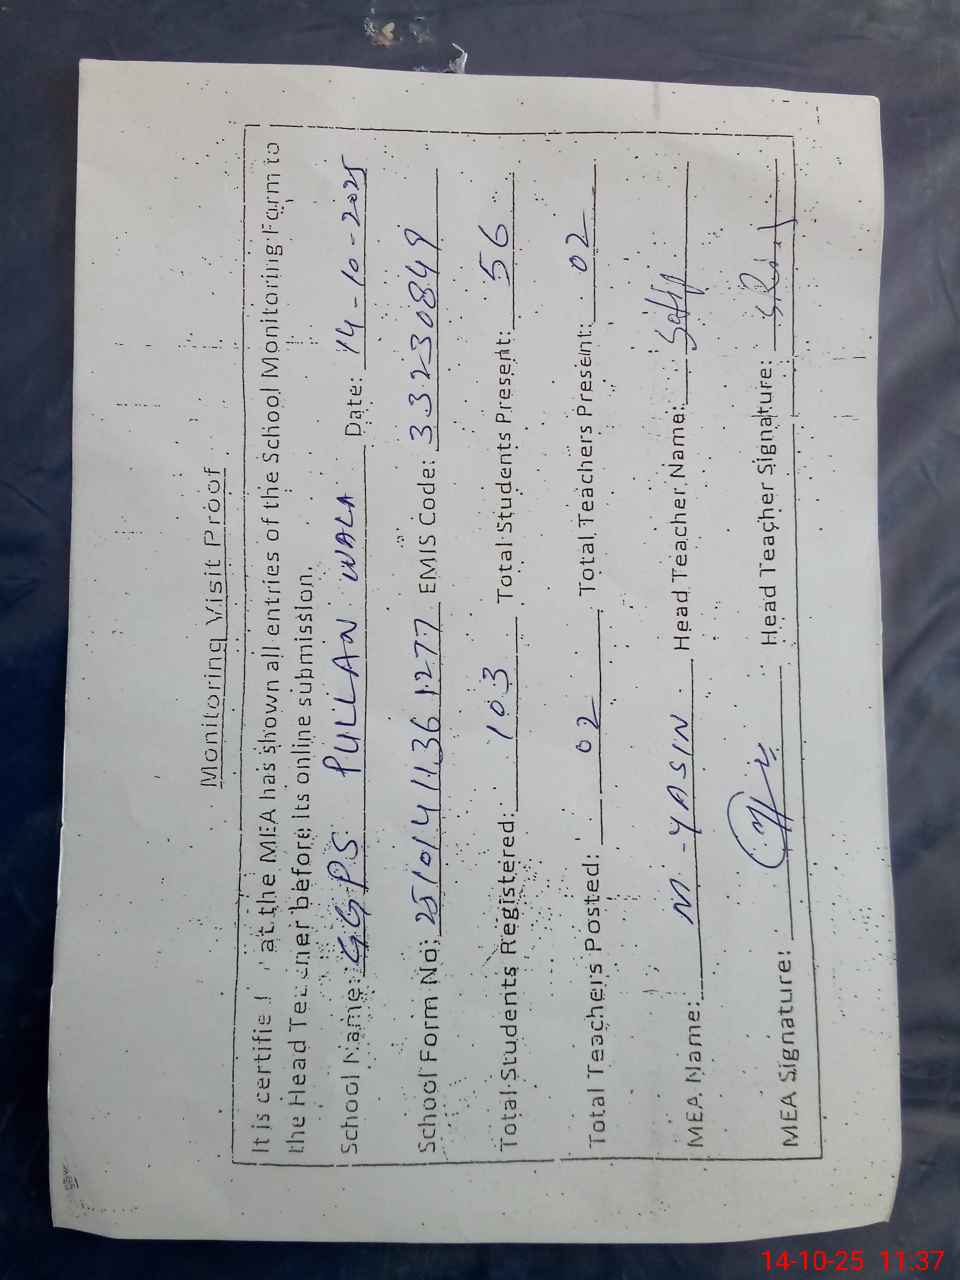 Monitoring Visit Proof
It is certified that the MEA has shown all entries of the School Monitoring Form to
the Head Teacher before its online submission.
School Name: GGPS PULLAN WALA Date: 14-10-2025
School Form No: 25101411361277 EMIS Code: 33230849
Total Students Registered: 103 Total Students Present: 56
Total Teachers Posted: 02 Total Teachers Present: 02
MEA Name: M-YASIN Head Teacher Name:
MEA Signature: Head Teacher Signature:
14-10-25 11:37